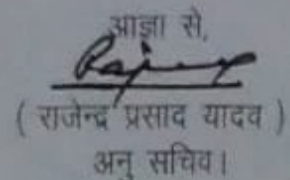 आज्ञा से,
( राजेन्द्र प्रसाद यादव )
अनु सचिव।